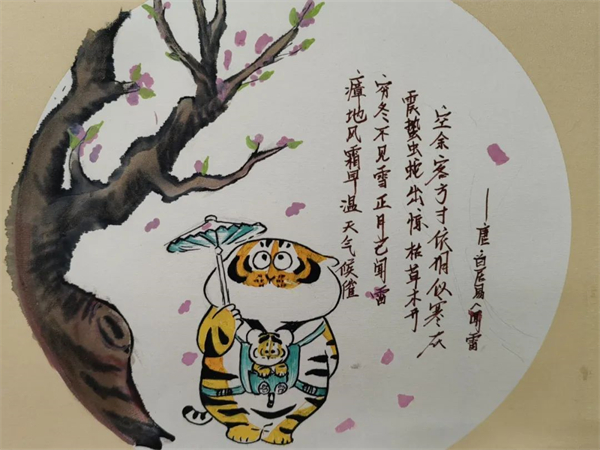 瘴地风霜早温天气候催
穷冬不见雪正月已闻雷
震蛰虫蛇出惊枯草木开
空余客方寸依旧似寒灰
——唐 白居易《闻雷